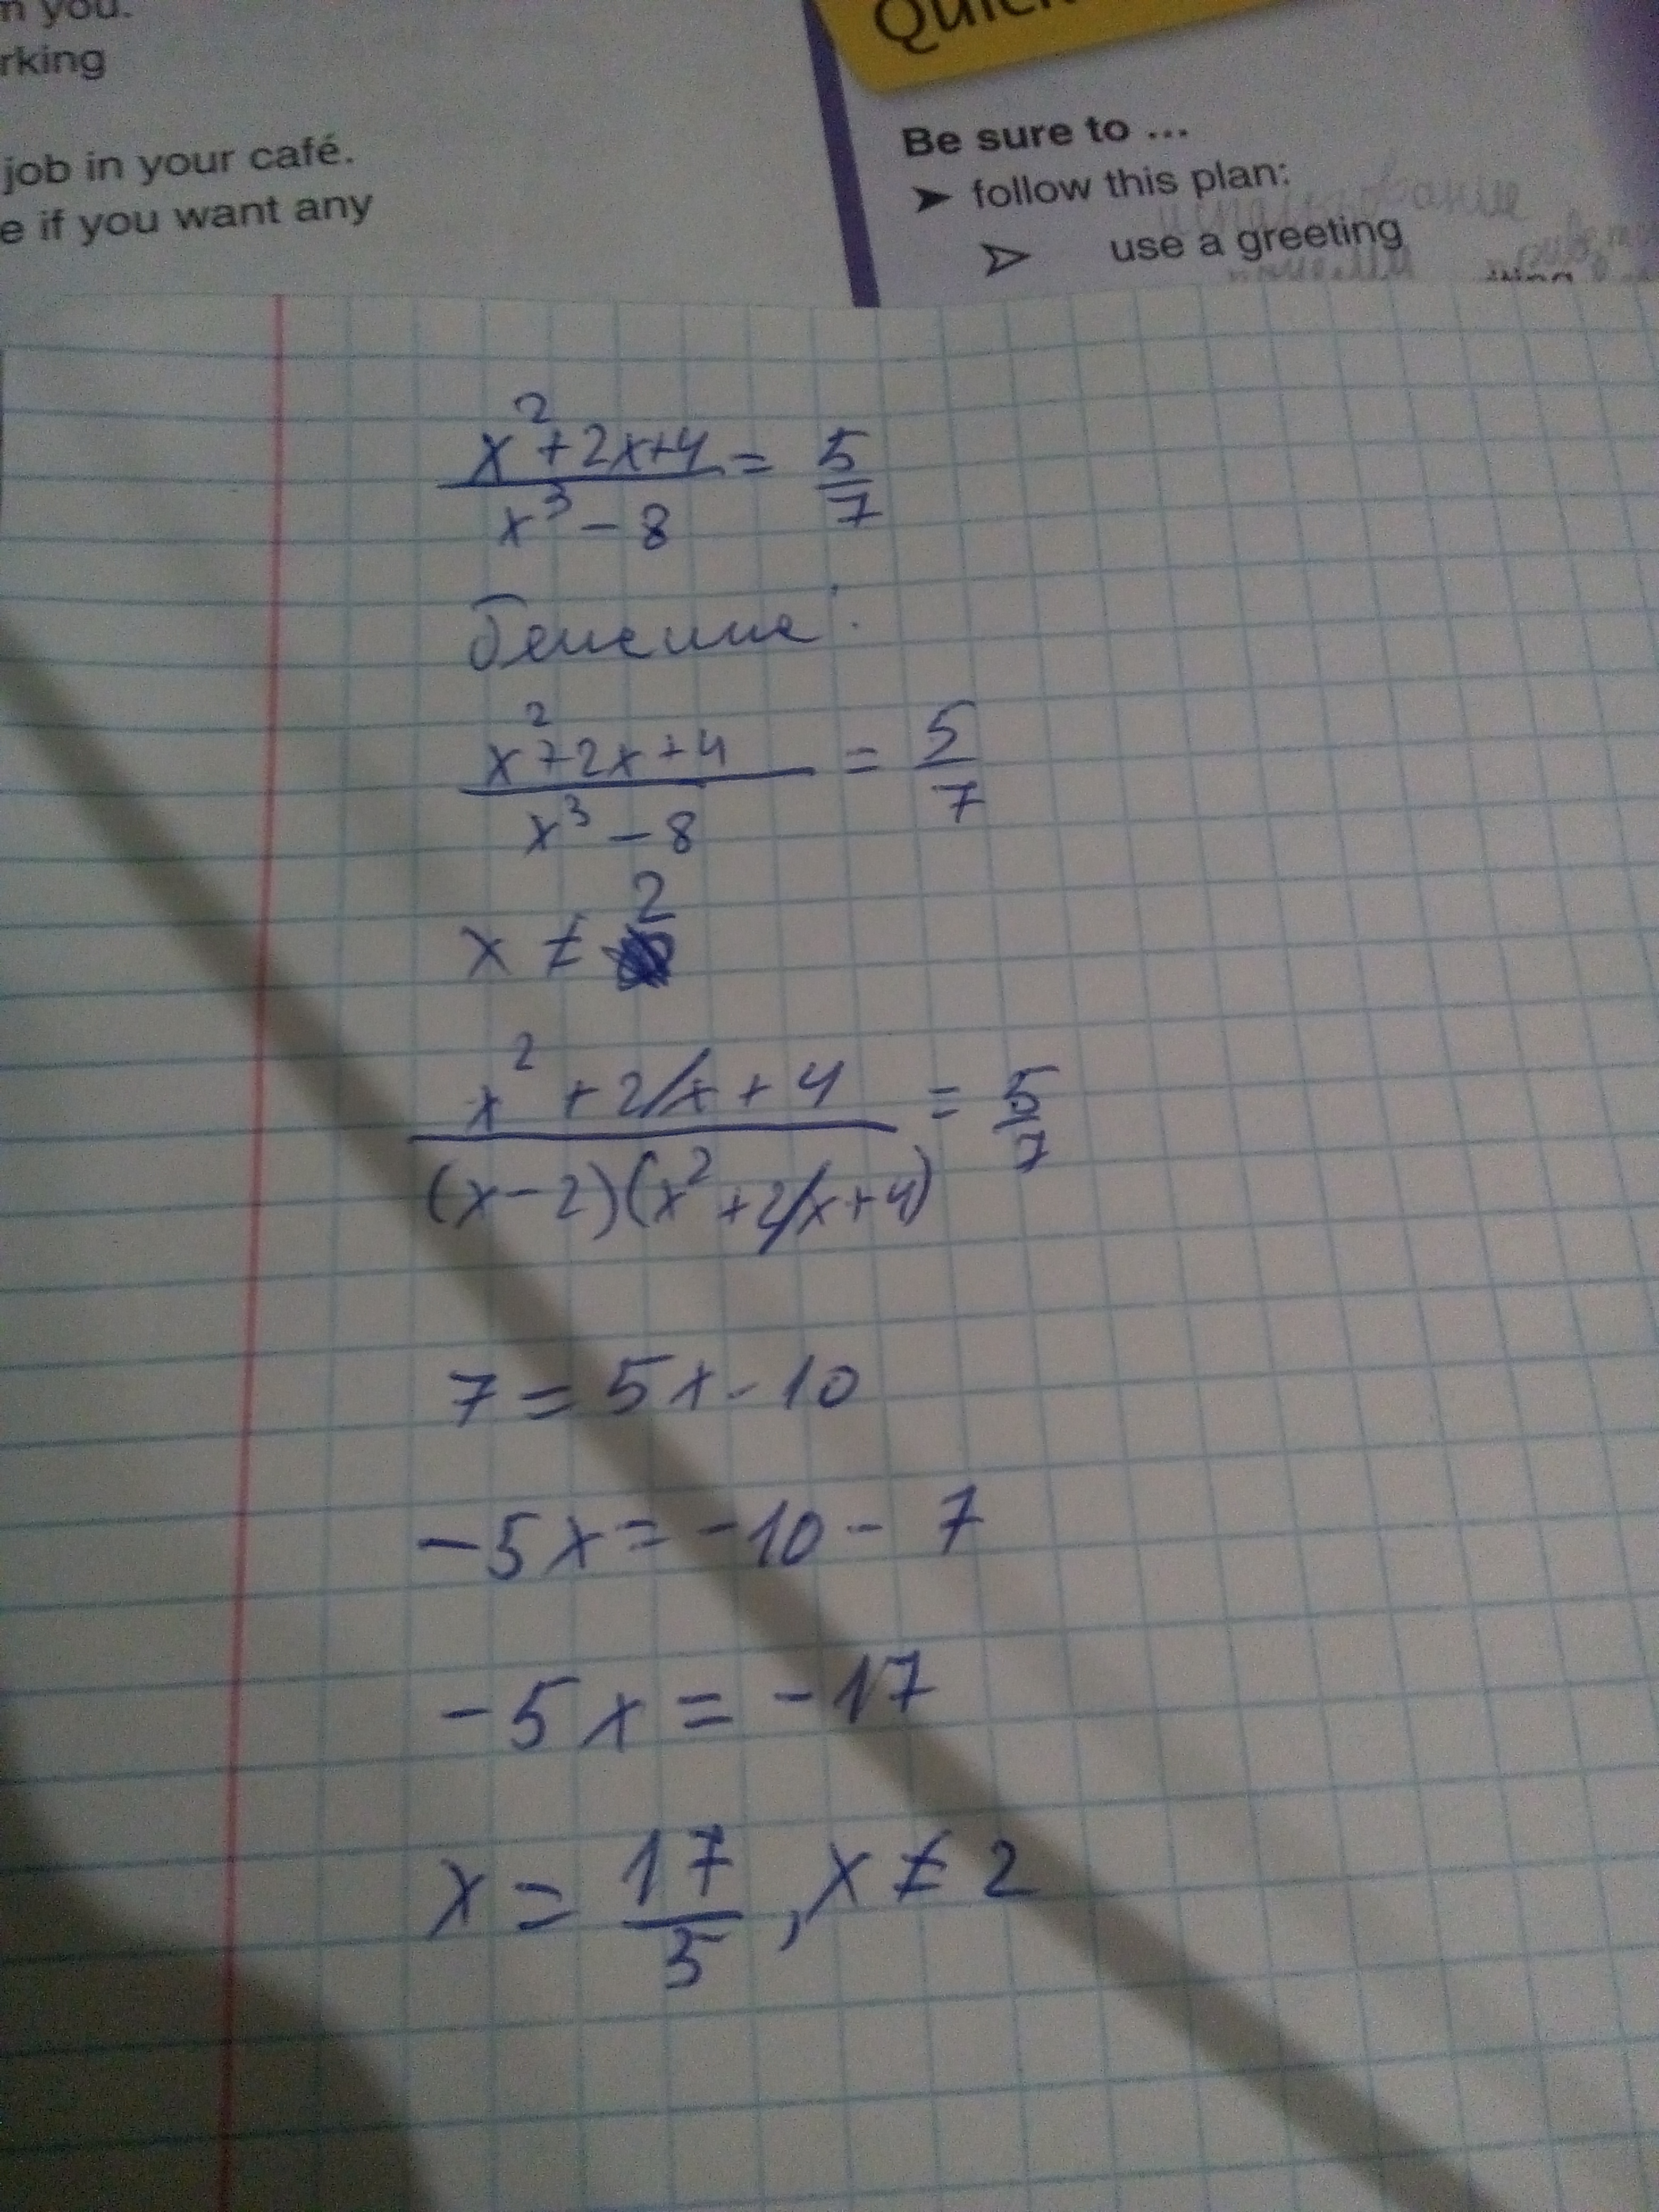 n you.
rking
job in your café.
e if you want any
Quick
Be sure to ...
➤ follow this plan:
использование
▷ use a greeting
x²+2x+4/x³-8 = 5/7
x²+2x+4/x³-8 = 5/7
x ≠ 2
x²+2x+4/(x-2)(x²+2x+4) = 5/7
7 = 5x - 10
-5x = -10 - 7
-5x = -17
x = 17/5, x ≠ 2